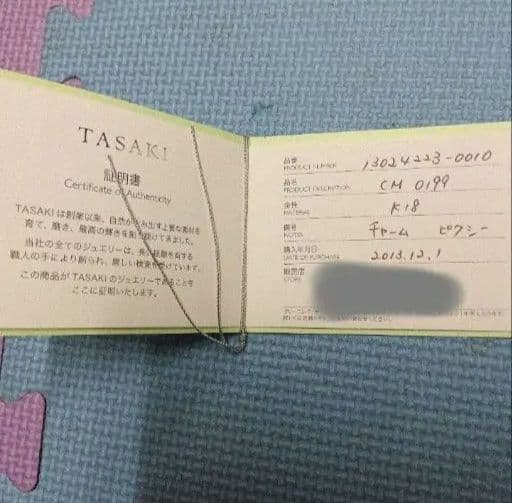 TASAKI
証明書
Certificate of Authenticity
TASAKIは創業以来、自然が生み出す上質な素材を
育て、磨き、最高の輝きを創り続けてきました。
当社の全てのジュエリーは、長い経験を有する
職人の手により創られ、厳しい検査を受けています。
この商品がTASAKIのジュエリーであることを
ここに証明いたします。
品番
PRODUCT NUMBER 13024223-0010
品名
PRODUCT DESCRIPTION CM 0199
素材
MATERIAL K18
備考
NOTES チャーム ピクシー
購入年月日
DATE OF PURCHASE 2013.12.1
取扱店
STORE